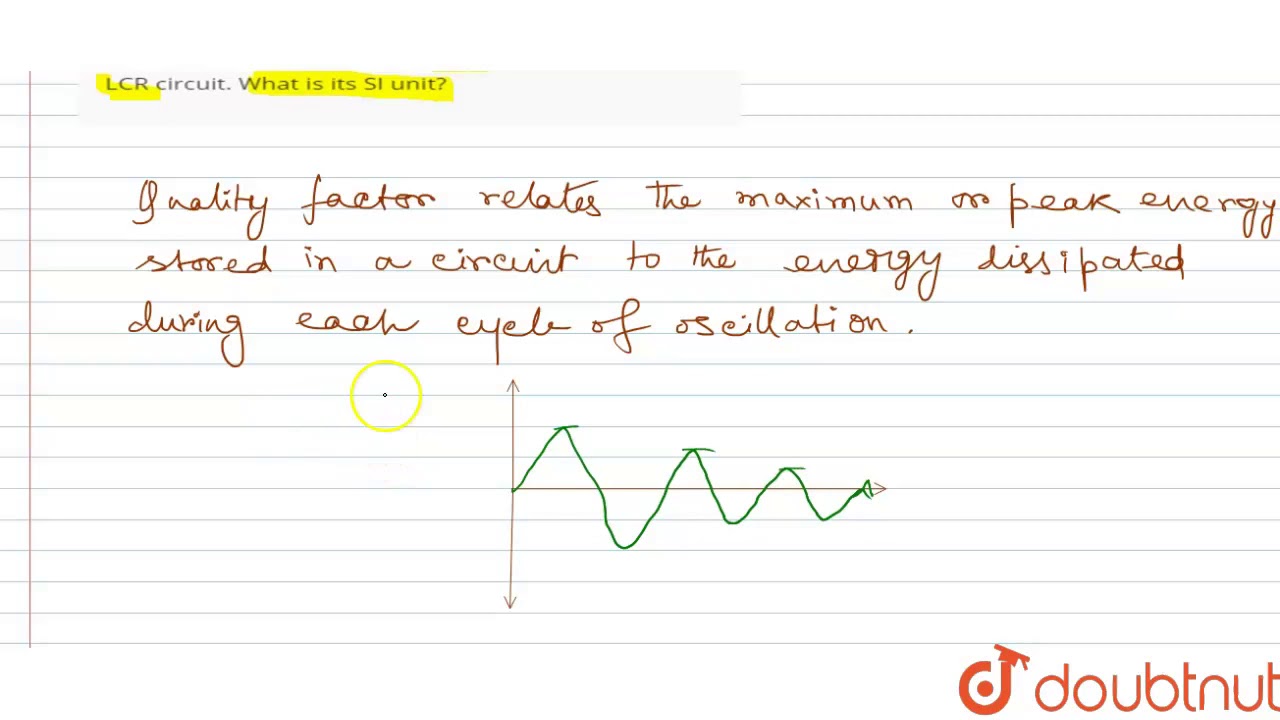 LCR circuit. What is its SI unit?
Quality factor relates the maximum or peak energy
stored in a circuit to the energy dissipated
during each cycle of oscillation.
doubtnut